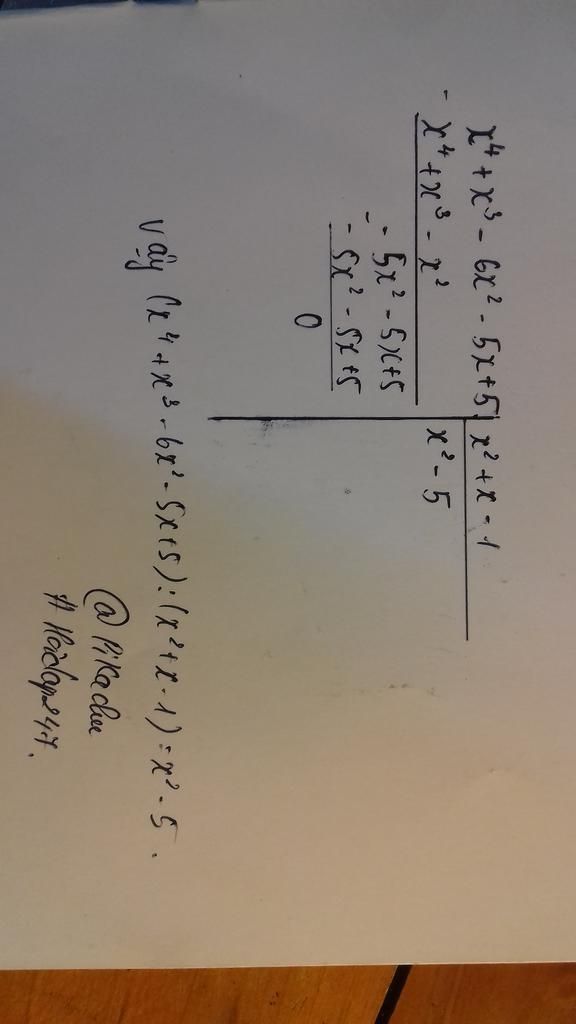 x⁴ + x³ - 6x² - 5x + 5 x² + x - 1
- x⁴ + x³ - x² x² - 5
- - 5x² - 5x + 5
- 5x² - 5x + 5
0
Vậy (x⁴ + x³ - 6x² - 5x + 5) : (x² + x - 1) = x² - 5.
@Pikachu
#Hoidap247.